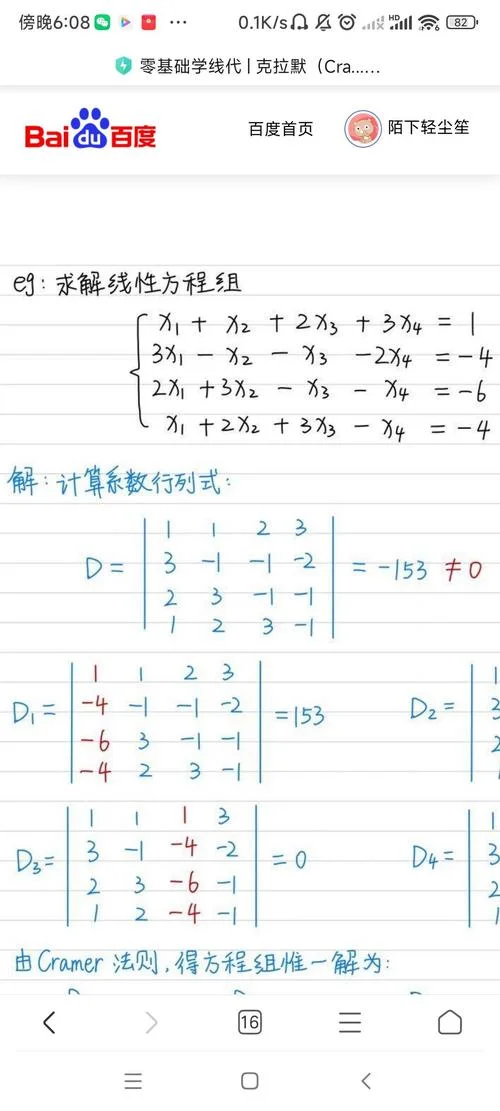 傍晚6:08 ··· 0.1K/s HD 82
零基础学线代 | 克拉默（Cra...…
Bai du 百度 百度首页 陌下轻尘笙
eg: 求解线性方程组
x₁ + x₂ + 2x₃ + 3x₄ = 1
3x₁ - x₂ - x₃ -2x₄ = -4
2x₁ +3x₂ - x₃ - x₄ = -6
x₁ +2x₂ +3x₃ - x₄ = -4
解: 计算系数行列式:
1 1 2 3
D = 3 -1 -1 -2 = -153 ≠ 0
2 3 -1 -1
1 2 3 -1
1 1 2 3 1
D₁ = -4 -1 -1 -2 = 153 D₂ = 3
-6 3 -1 -1 2
-4 2 3 -1
1 1 1 3 1
D₃ = 3 -1 -4 -2 = 0 D₄ = 3
2 3 -6 -1 2
1 2 -4 -1
由Cramer 法则, 得方程组惟一解为:
16